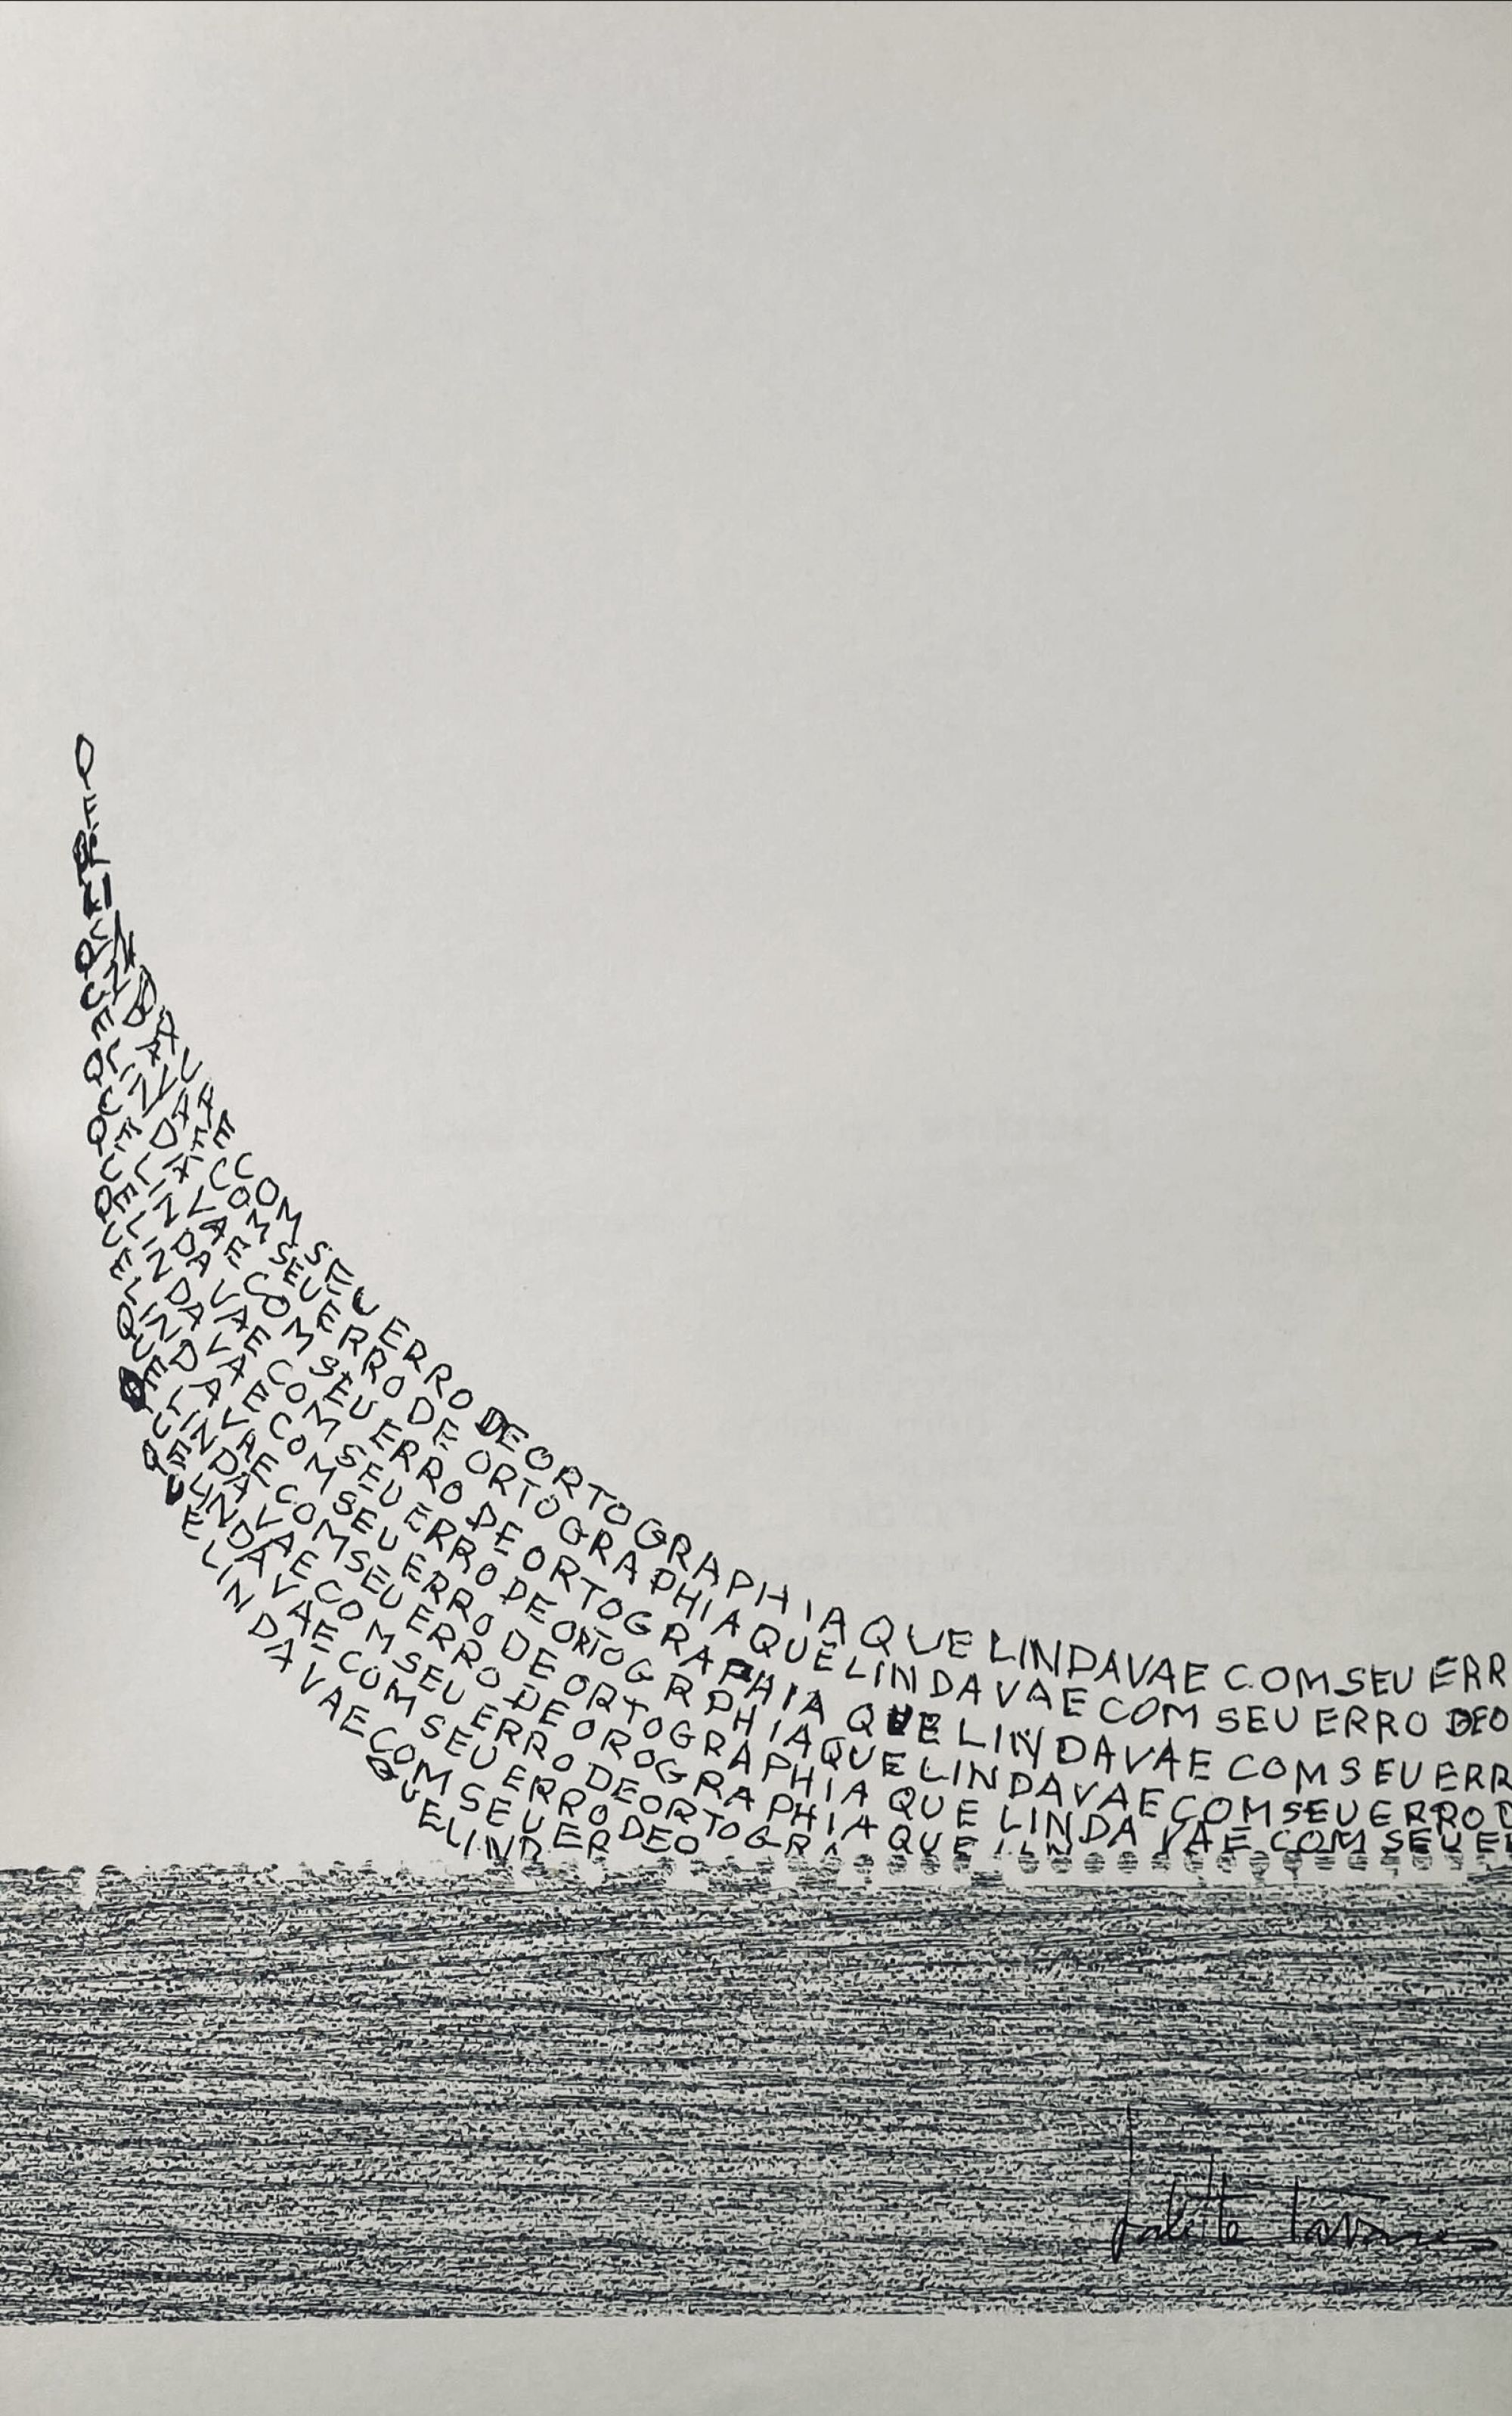 QUE LINDAVAE COM SEU ERRO DE ORTOGRAPHIA QUE LINDAVAE COM SEU ERR
QUE LINDAVAE COM SEU ERRO DE ORTOGRAPHIA QUE LINDAVAE COM SEU ERRO DEO
QUE LINDAVAE COM SEU ERRO DE ORTOGRAPHIA QUE LINDAVAE COM SEU ERR
QUE LINDAVAE COM SEU ERRO DE ORTOGRPHIA QUE LINDAVAE COM SEU ERRO D
QUE LINDAVAE COM SEU ERRO DE ORTOGRAPHIA QUE LINDAVAE COM SEU ER
QUE LINDAVAE COM SEU ERRO DE OROGRAPHIA QUE
QUE LINDAVAE COM SEU ERRO DE ORTOGRA
QUE LINDAVAE COM SEU ERRO DEO
QUE LINDAVAE COM SEU ER
QUE LIND